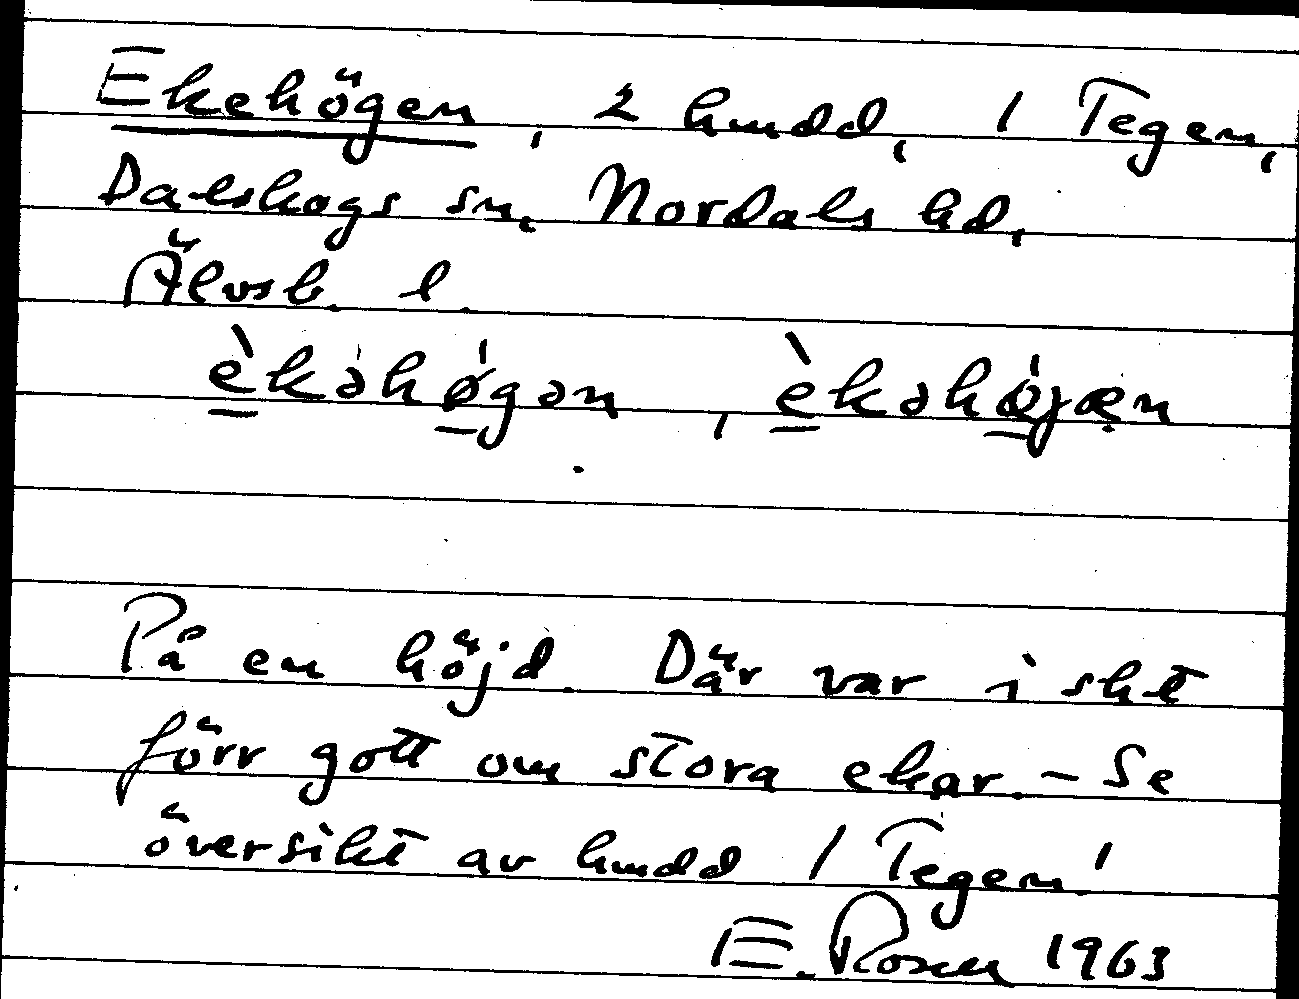 Ekehögen, 2 hmdd, 1 Tegen,
Dalskogs sn, Nordals hd,
Älvsb. l.
èkəhø̀gən, èkəhø̀jæn
På en höjd. Där var i skt
förr gott om stora ekar. – Se
översikt av hmdd 1 Tegen!
E. Rosen 1963